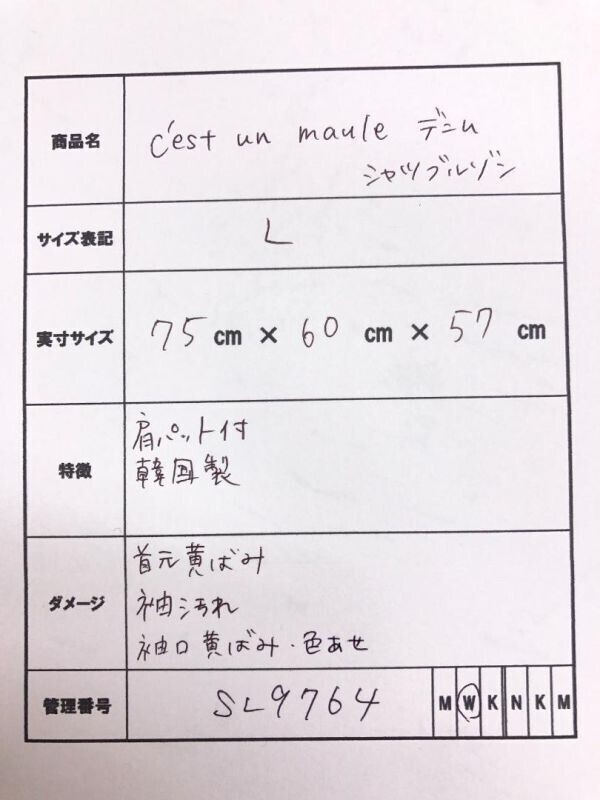 商品名 c'est un maule デニム
シャツブルゾン
サイズ表記 L
実寸サイズ 75 cm × 60 cm × 57 cm
特徴 肩パット付
韓国製
ダメージ 首元黄ばみ
袖汚れ
袖口黄ばみ・色あせ
管理番号 SL9764 M W K N K M